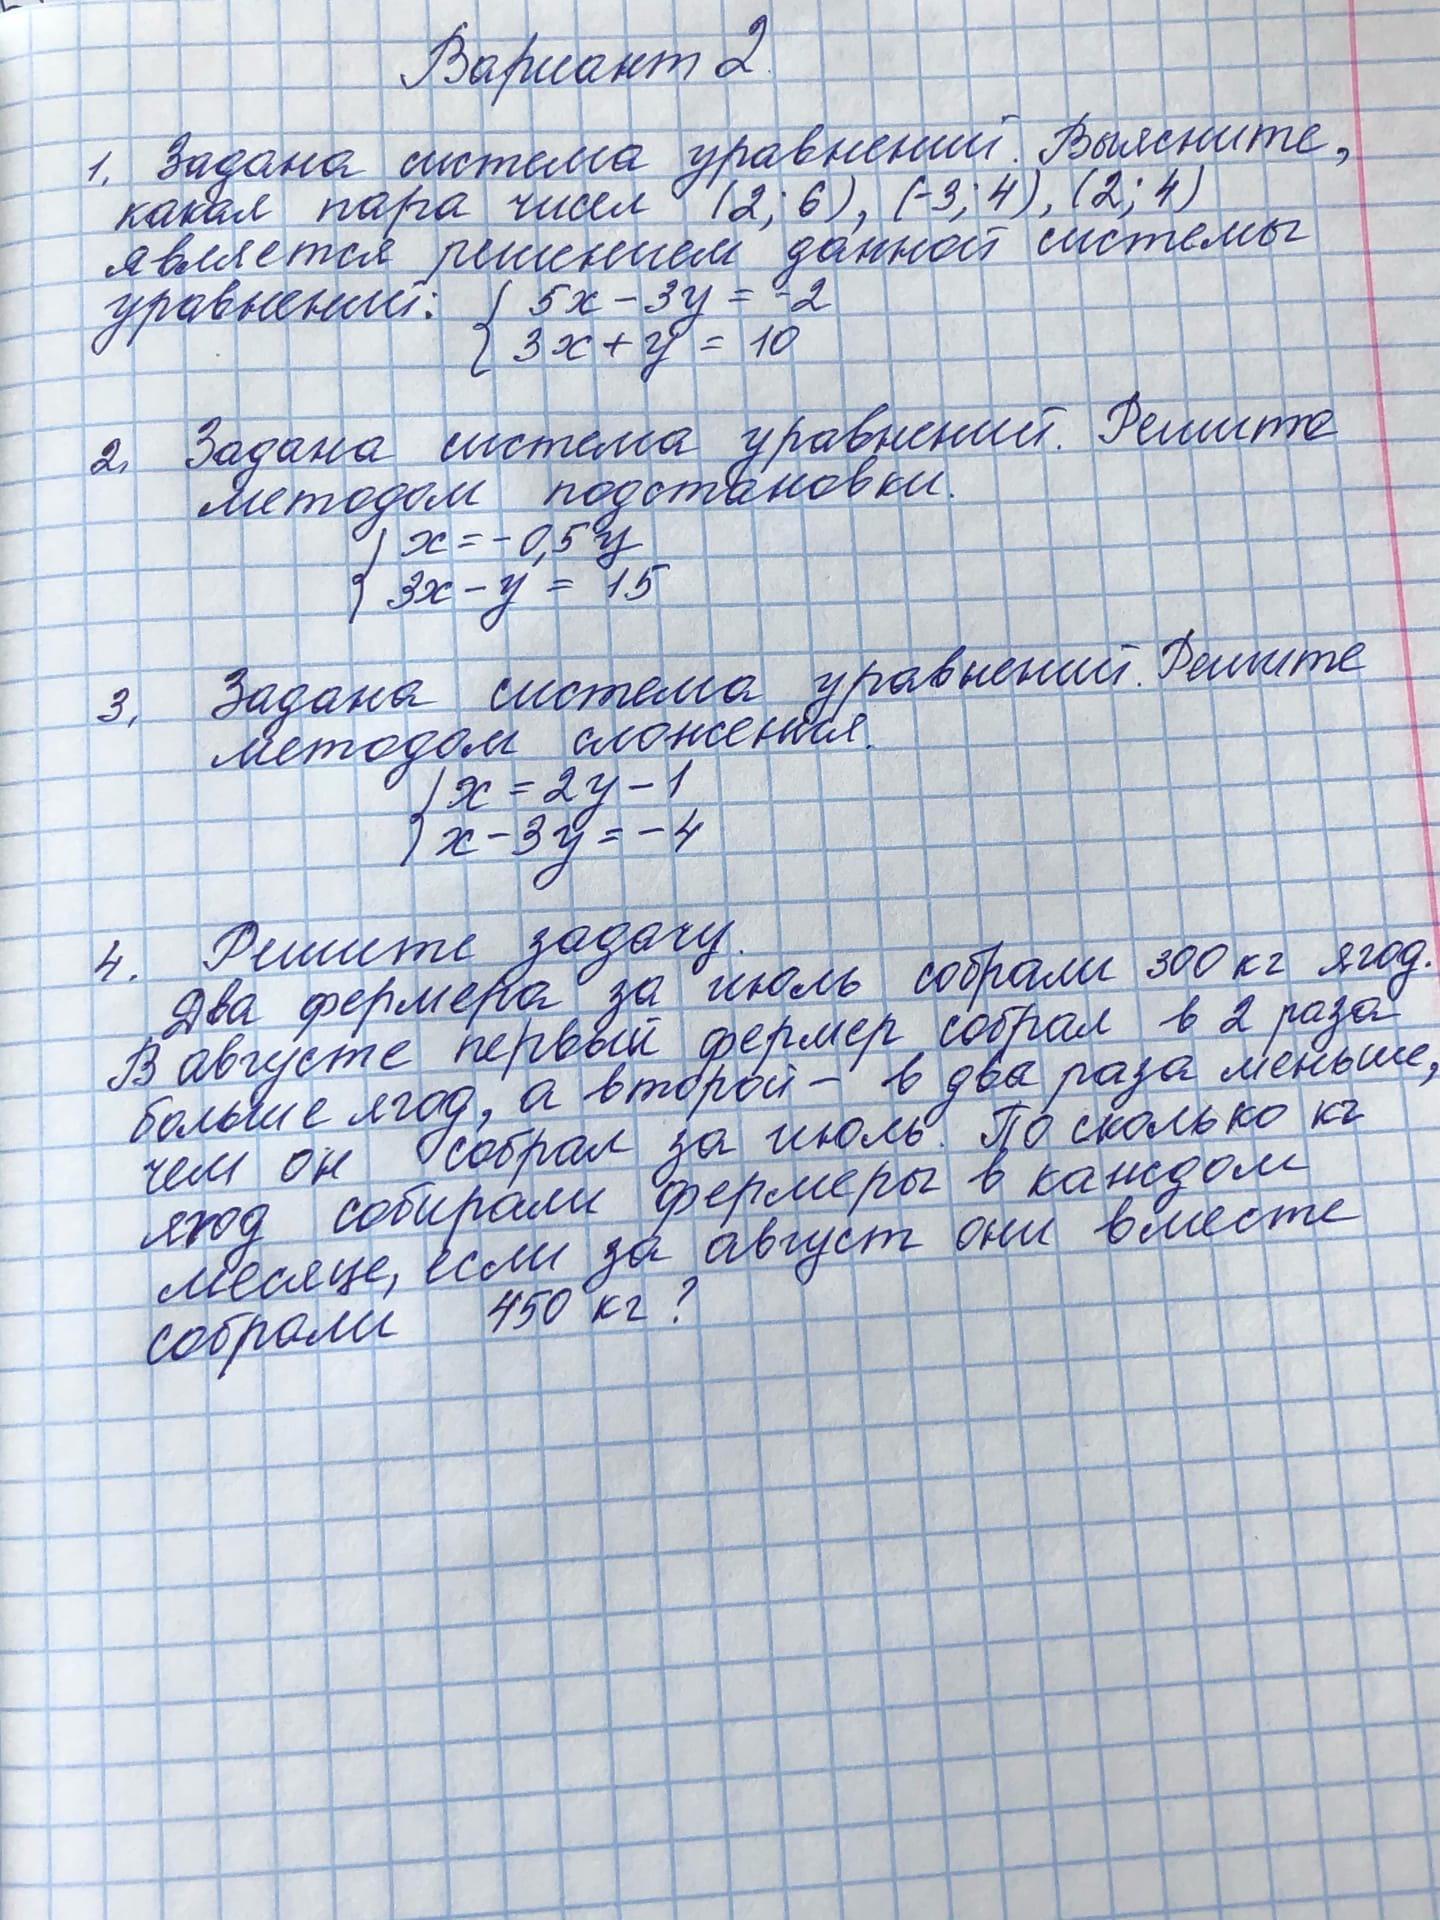 Вариант 2.
1. Задана система уравнений. Выясните,
какая пара чисел (2; 6), (-3; 4), (2; 4)
является решением данной системы
уравнений: { 5x - 3y = -2
3x + y = 10
2. Задана система уравнений. Решите
методом подстановки.
{ x = -0,5y
3x - y = 15
3. Задана система уравнений. Решите
методом сложения.
{ x = 2y - 1
x - 3y = -4
4. Решите задачу.
Два фермера за июль собрали 300 кг ягод.
В августе первый фермер собрал в 2 раза
больше ягод, а второй - в два раза меньше,
чем он собрал за июль. По сколько кг
ягод собирали фермеры в каждом
месяце, если за август они вместе
собрали 450 кг?